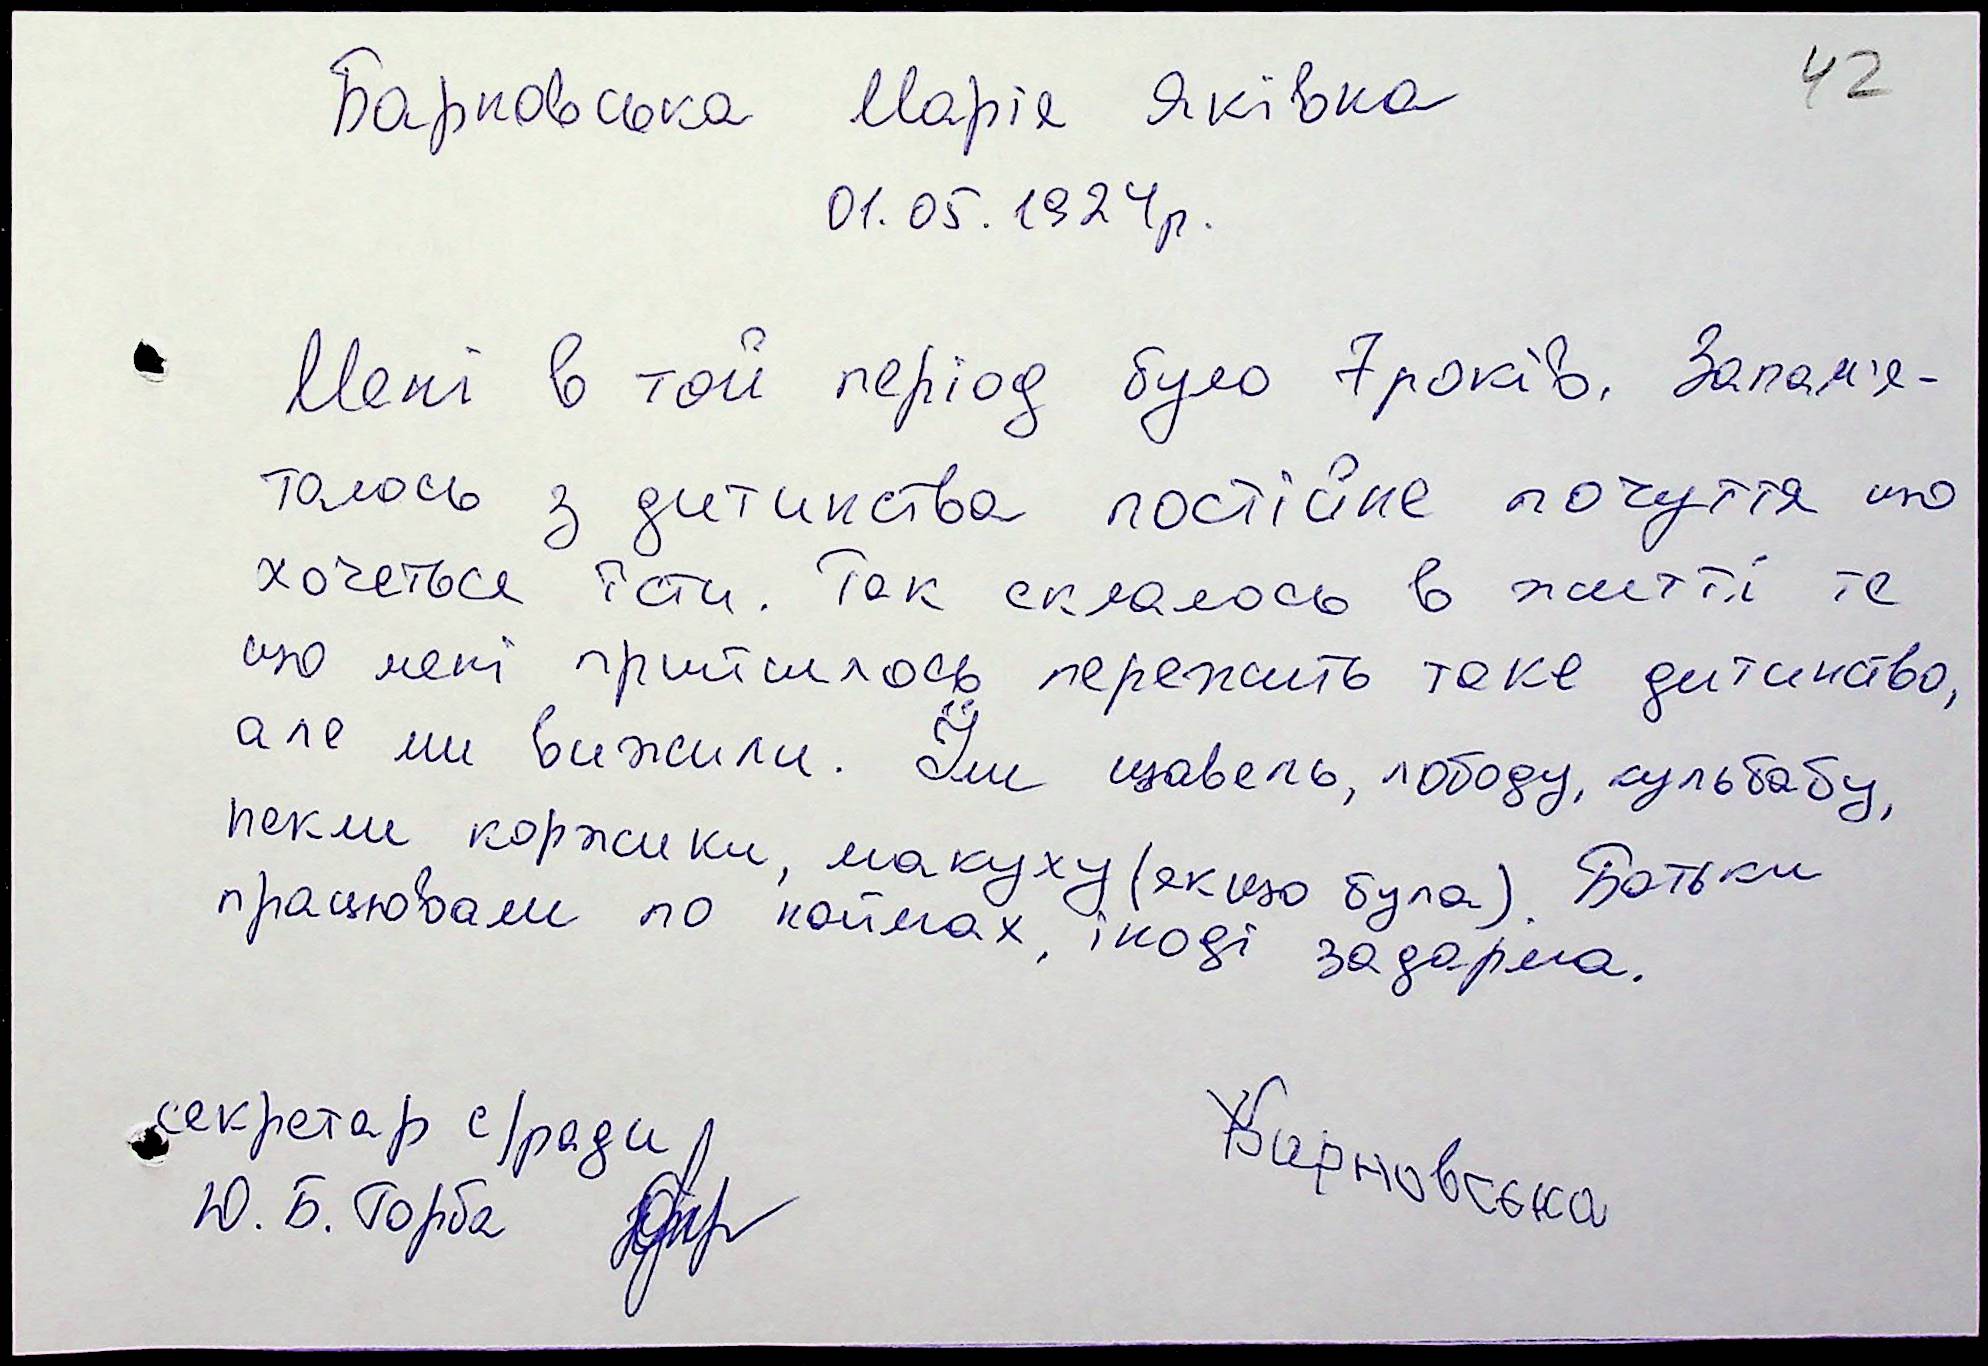 42
Барновська Марія Яківна
01.05.1924р.
Мені в той період було 7 років. Запам'я-
талось з дитинства постійне почуття що
хочеться їсти. Так склалось в житті те
що мені прийшлось пережить таке дитинство,
але ми вижили. Їли щавель, лободу, кульбабу,
пекли коржики, макуху (якщо була). Батьки
працювали по наймах, іноді задарма.
секретар с/ради
Ю. Б. Горба
Барновська